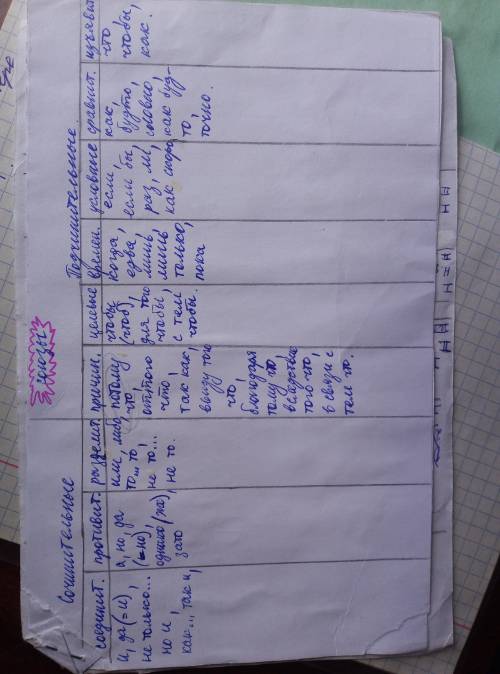 Союзы
Сочинительные
Подчинительные
соединит.
и, да (= и),
не только...
но и,
как... так и,
противит.
а, но, да
(= но),
однако (же),
зато
разделит.
или, либо
то... то
не то...
не то.
причин.
потому
что,
оттого
что,
так как,
ввиду того
что,
благодаря
тому что,
вследствие
того что,
в связи с
тем что.
целевые
чтобы
(чтоб),
для того
чтобы,
с тем
чтобы.
времен.
когда,
едва,
лишь
лишь
только,
пока
условные
если,
если бы,
раз, ли,
как скоро
сравнит.
как,
будто,
словно,
как буд-
то,
точно.
изъявит.
что,
чтобы,
как.